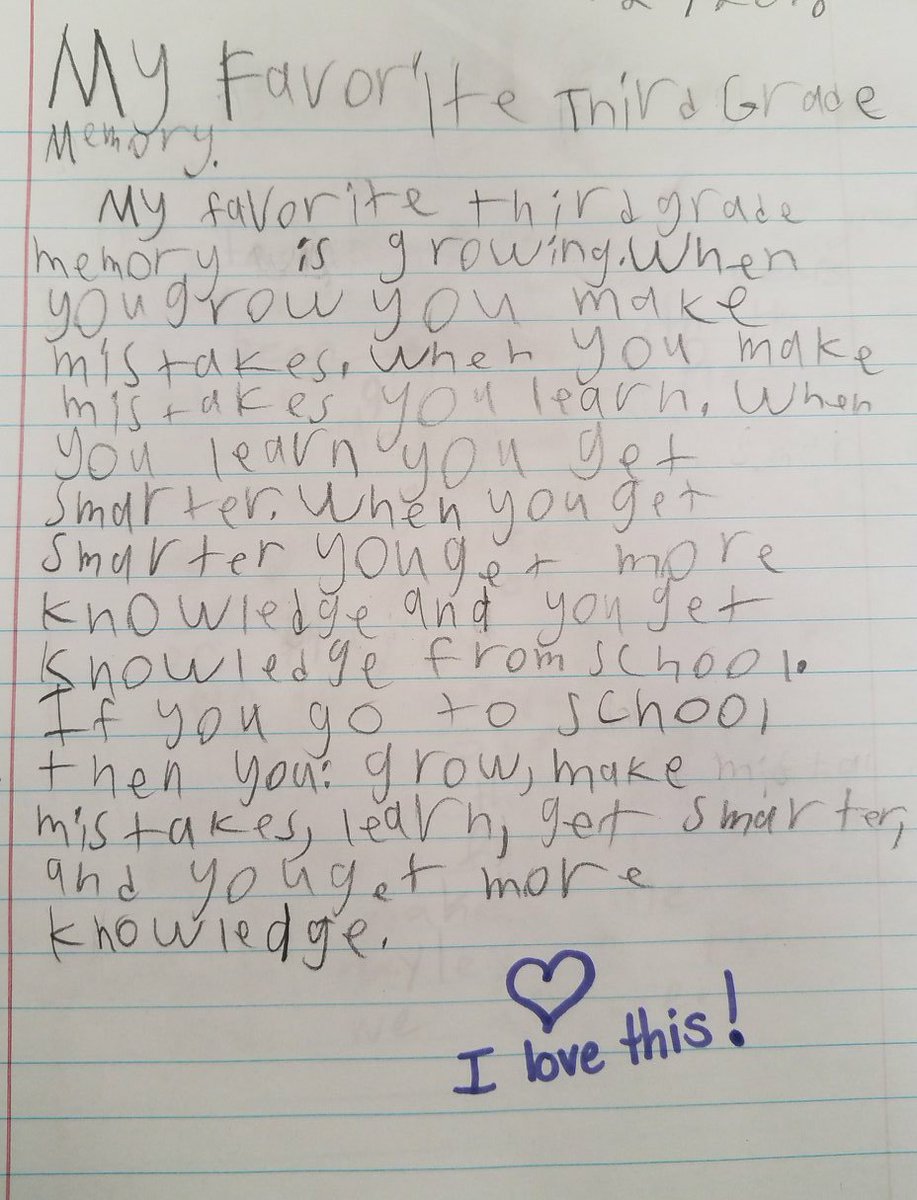 My Favorite Third Grade
Memory.
My favorite third grade
memory is growing. When
you grow you make
mistakes. When you make
mistakes you learn. When
you learn you get
smarter. When you get
smarter you get more
knowledge and you get
knowledge from school.
If you go to school
then you: grow, make
mistakes, learn, get smarter,
and you get more
knowledge.
I love this!